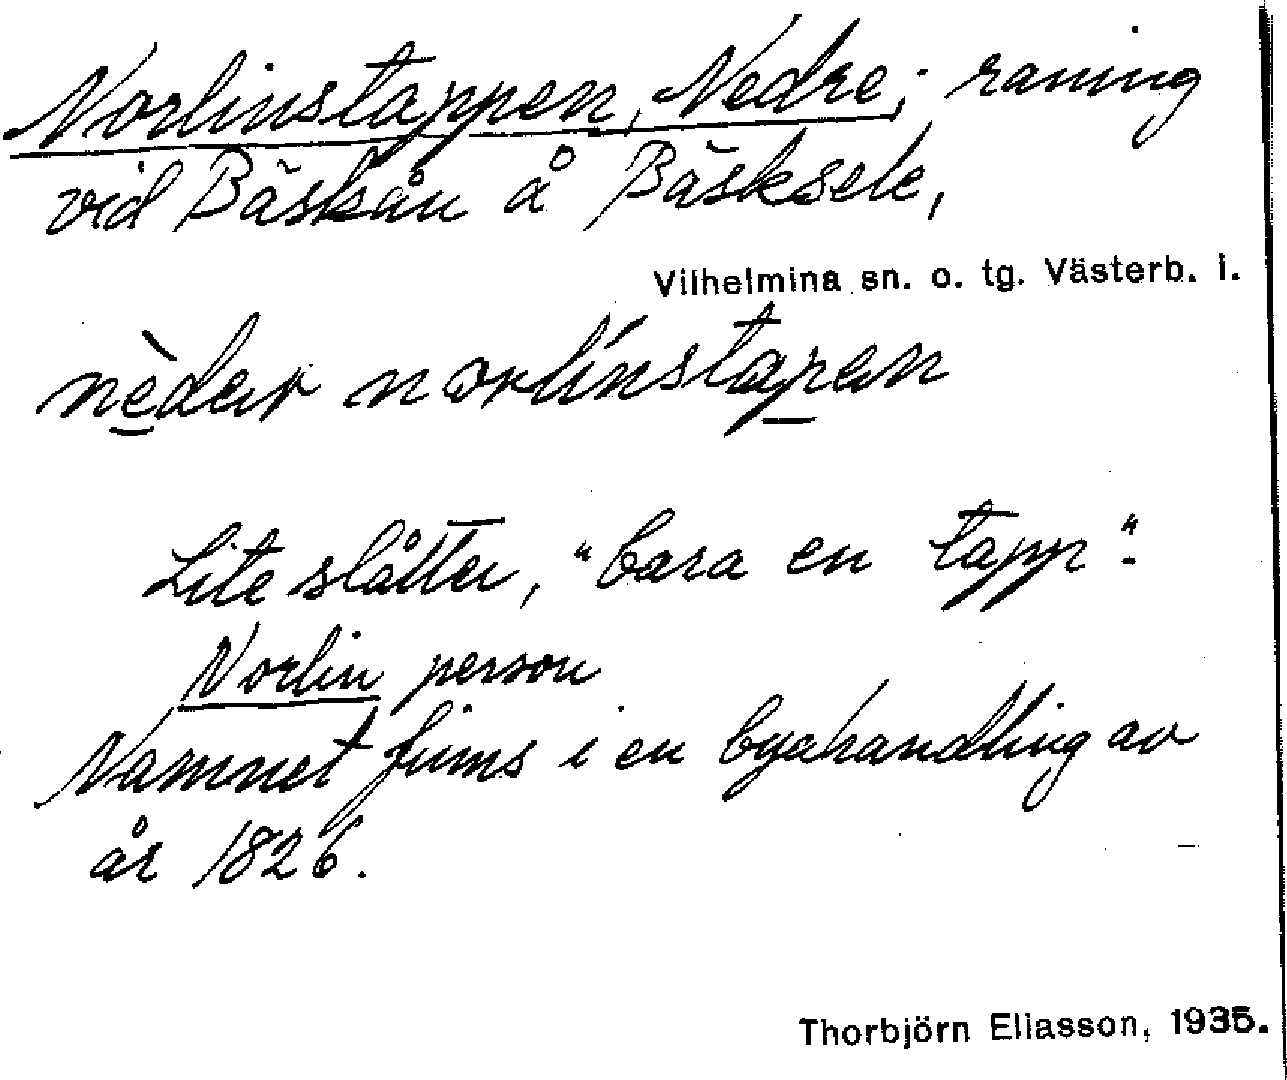 Norlinstappen, Nedre; raning
vid Bäskån å Bäsksele,
Vilhelmina sn. o. tg. Västerb. l.
nèdər norlínstapen
Lite slåtter, "bara en tapp".
Norlin person
Namnet finns i en byahandling av
år 1826.
Thorbjörn Eliasson, 1935.